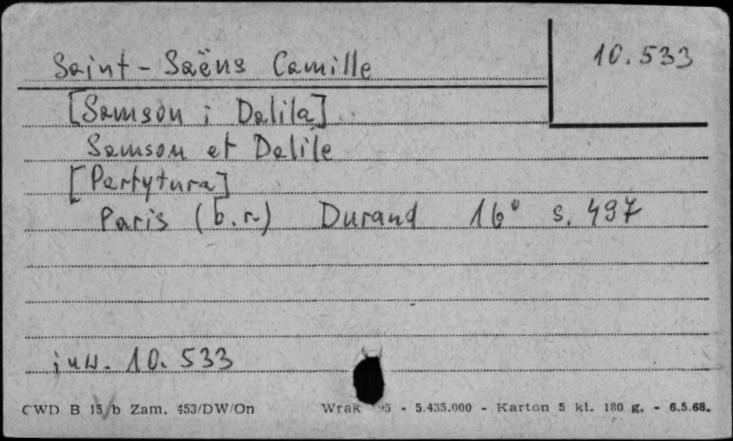 10.533
Saint-Saëns Camille
[Samson i Dalila]
Samson et Dalile
[Partytura]
Paris (b.r.) Durand 16° s. 497
inw. 10.533
CWD B 15/b Zam. 453/DW/On Wrak 95 - 5.435.000 - Karton 5 kl. 180 g. - 6.5.68.